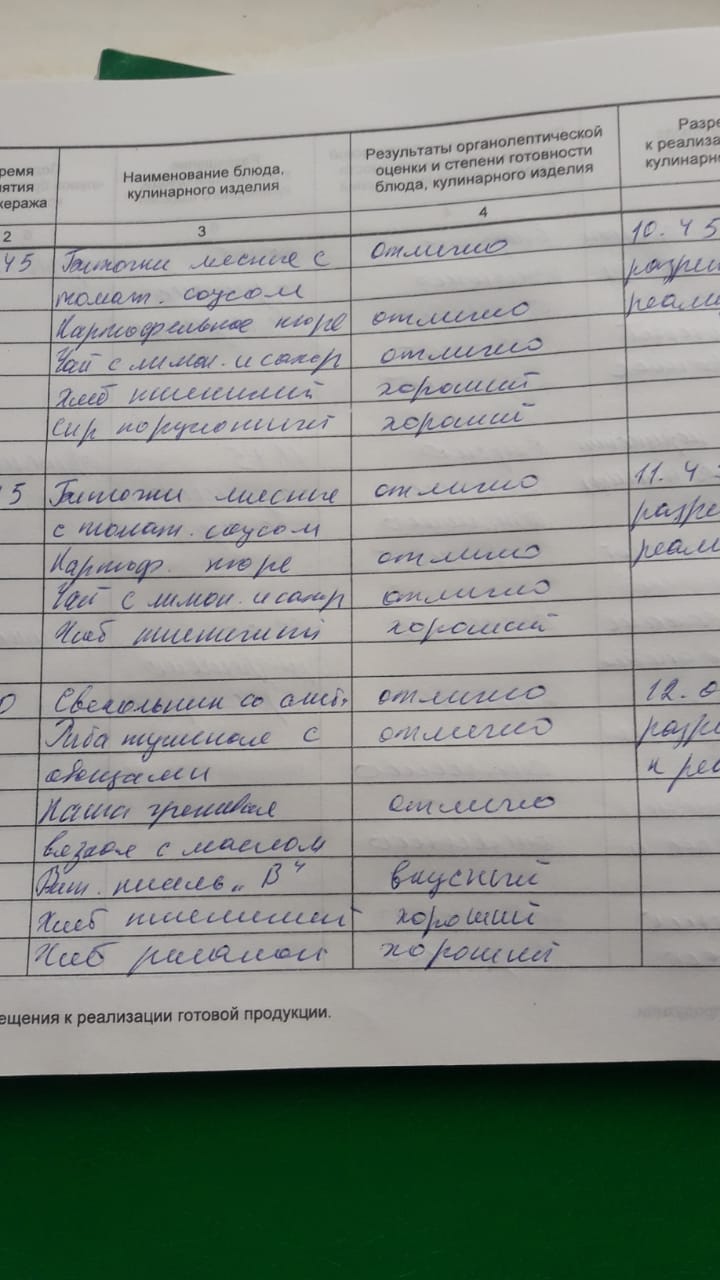 ремя
нятия
кеража
Наименование блюда,
кулинарного изделия
Результаты органолептической
оценки и степени готовности
блюда, кулинарного изделия
Разре
к реализа
кулинарн
2 3 4
45 Биточки мясные с отлично 10.45
томат. соусом разре
Картофельное пюре отлично реали
Чай с лимон. и сахар отлично
Хлеб пшеничный хороший
Сыр порционный хороший
5 Биточки мясные отлично 11.45
с томат. соусом разре
Картоф. пюре отлично реали
Чай с лимон. и сахар отлично
Хлеб пшеничный хороший
0 Свекольник со смет. отлично 12.0
Рыба тушеная с отлично разре
овощами к реа
Каша гречневая отлично
вязкая с маслом
Вит. кисель "В" вкусный
Хлеб пшеничный хороший
Хлеб ржаной хороший
ещения к реализации готовой продукции.